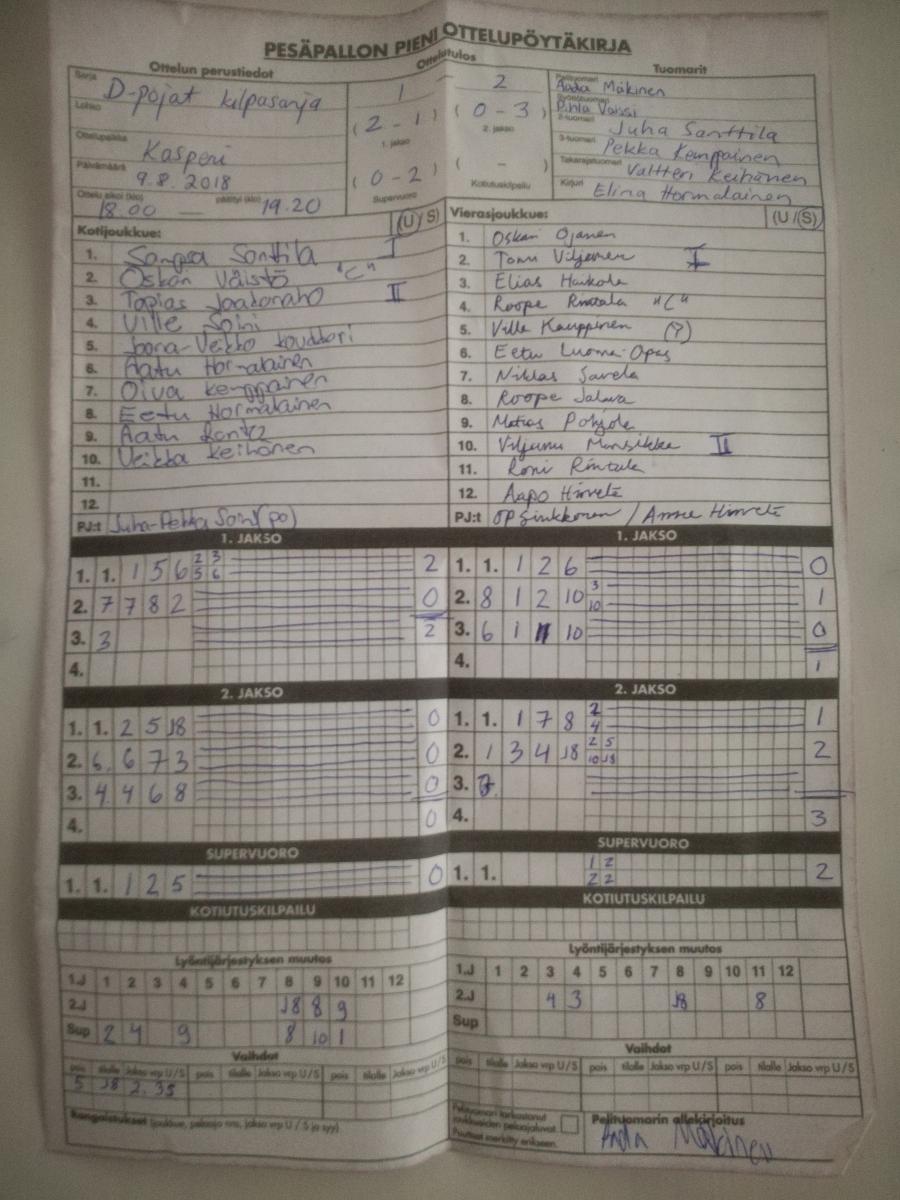 PESÄPALLON PIENI OTTELUPÖYTÄKIRJA
Ottelun perustiedot
Ottelutulos
Tuomarit
Sarja
D-pojat kilpasarja
1 — 2
Pelituomari
Aada Mäkinen
Lohko
(2 - 1) (0 - 3)
1. jakso 2. jakso
Syöttötuomari
Pihla
2-tuomari
Juha Santtila
Ottelupaikka
Kasperi
3-tuomari
Pekka Kemppainen
Päivämäärä
9.8.2018
(0 - 2) ( - )
Supervuoro Kotiutuskilpailu
Takarajatuomari
Valtteri Keihänen
Ottelu alkoi (klo) päättyi (klo)
18.00 — 19.20
Kirjuri
Elina Hormalainen
Kotijoukkue: (U / S)
1. Sampsa Santtila I
2. Oskari Väistö "C"
3. Topias Jaakonaho II
4. Ville Soini
5. Joona-Veikko
6. Aatu Hormalainen
7. Oiva Kemppainen
8. Eetu Hormalainen
9. Aatu
10. Veikka Keihänen
11.
12.
PJ:t Juha-Pekka Soini (po)
Vierasjoukkue: (U / S)
1. Oskari Ojanen
2. Tomi Viljanen I
3. Elias Haikola
4. Roope Rintala "C"
5. Ville Kauppinen (?)
6. Eetu Luoma-Opas
7. Niklas Savela
8. Roope Jalava
9. Matias Pohjola
10. Viljami Mansikka II
11. Roni Rintala
12. Aapo Hirvelä
PJ:t OP Sinkkonen / Anne Hirvelä
1. JAKSO
1. 1. 1 5 6 2 3 2
5 6
2. 7 7 8 2 0
3. 3 2
4.
1. JAKSO
1. 1. 1 2 6 0
2. 8 1 2 10 3 1
10
3. 6 1 10 0
4. 1
2. JAKSO
1. 1. 2 5 J8 0
2. 6. 6 7 3 0
3. 4. 4 6 8 0
4. 0
2. JAKSO
1. 1. 1 7 8 2 1
4
2. 1 3 4 J8 2 5 2
10 J8
3. 7.
4. 3
SUPERVUORO
1. 1. 1 2 5 0
SUPERVUORO
1. 1. 1 2 2
2 2
KOTIUTUSKILPAILU
KOTIUTUSKILPAILU
Lyöntijärjestyksen muutos
1.J 1 2 3 4 5 6 7 8 9 10 11 12
2.J J8 8 9
Sup 2 4 9 8 10 1
Lyöntijärjestyksen muutos
1.J 1 2 3 4 5 6 7 8 9 10 11 12
2.J 4 3 J8 8
Sup
Vaihdot
pois tilalle Jakso vrp U / S pois tilalle Jakso vrp U / S pois tilalle Jakso vrp U / S
5 J8 2. 3S
Vaihdot
pois tilalle Jakso vrp U / S pois tilalle Jakso vrp U / S pois tilalle Jakso vrp U / S
Rangaistukset (joukkue, pelaaja nro, jakso vrp U / S ja syy)
Pelituomari tarkastanut
joukkueiden pelaajaluvat.
Puutteet merkitty erikseen.
Pelituomarin allekirjoitus
Aada Mäkinen